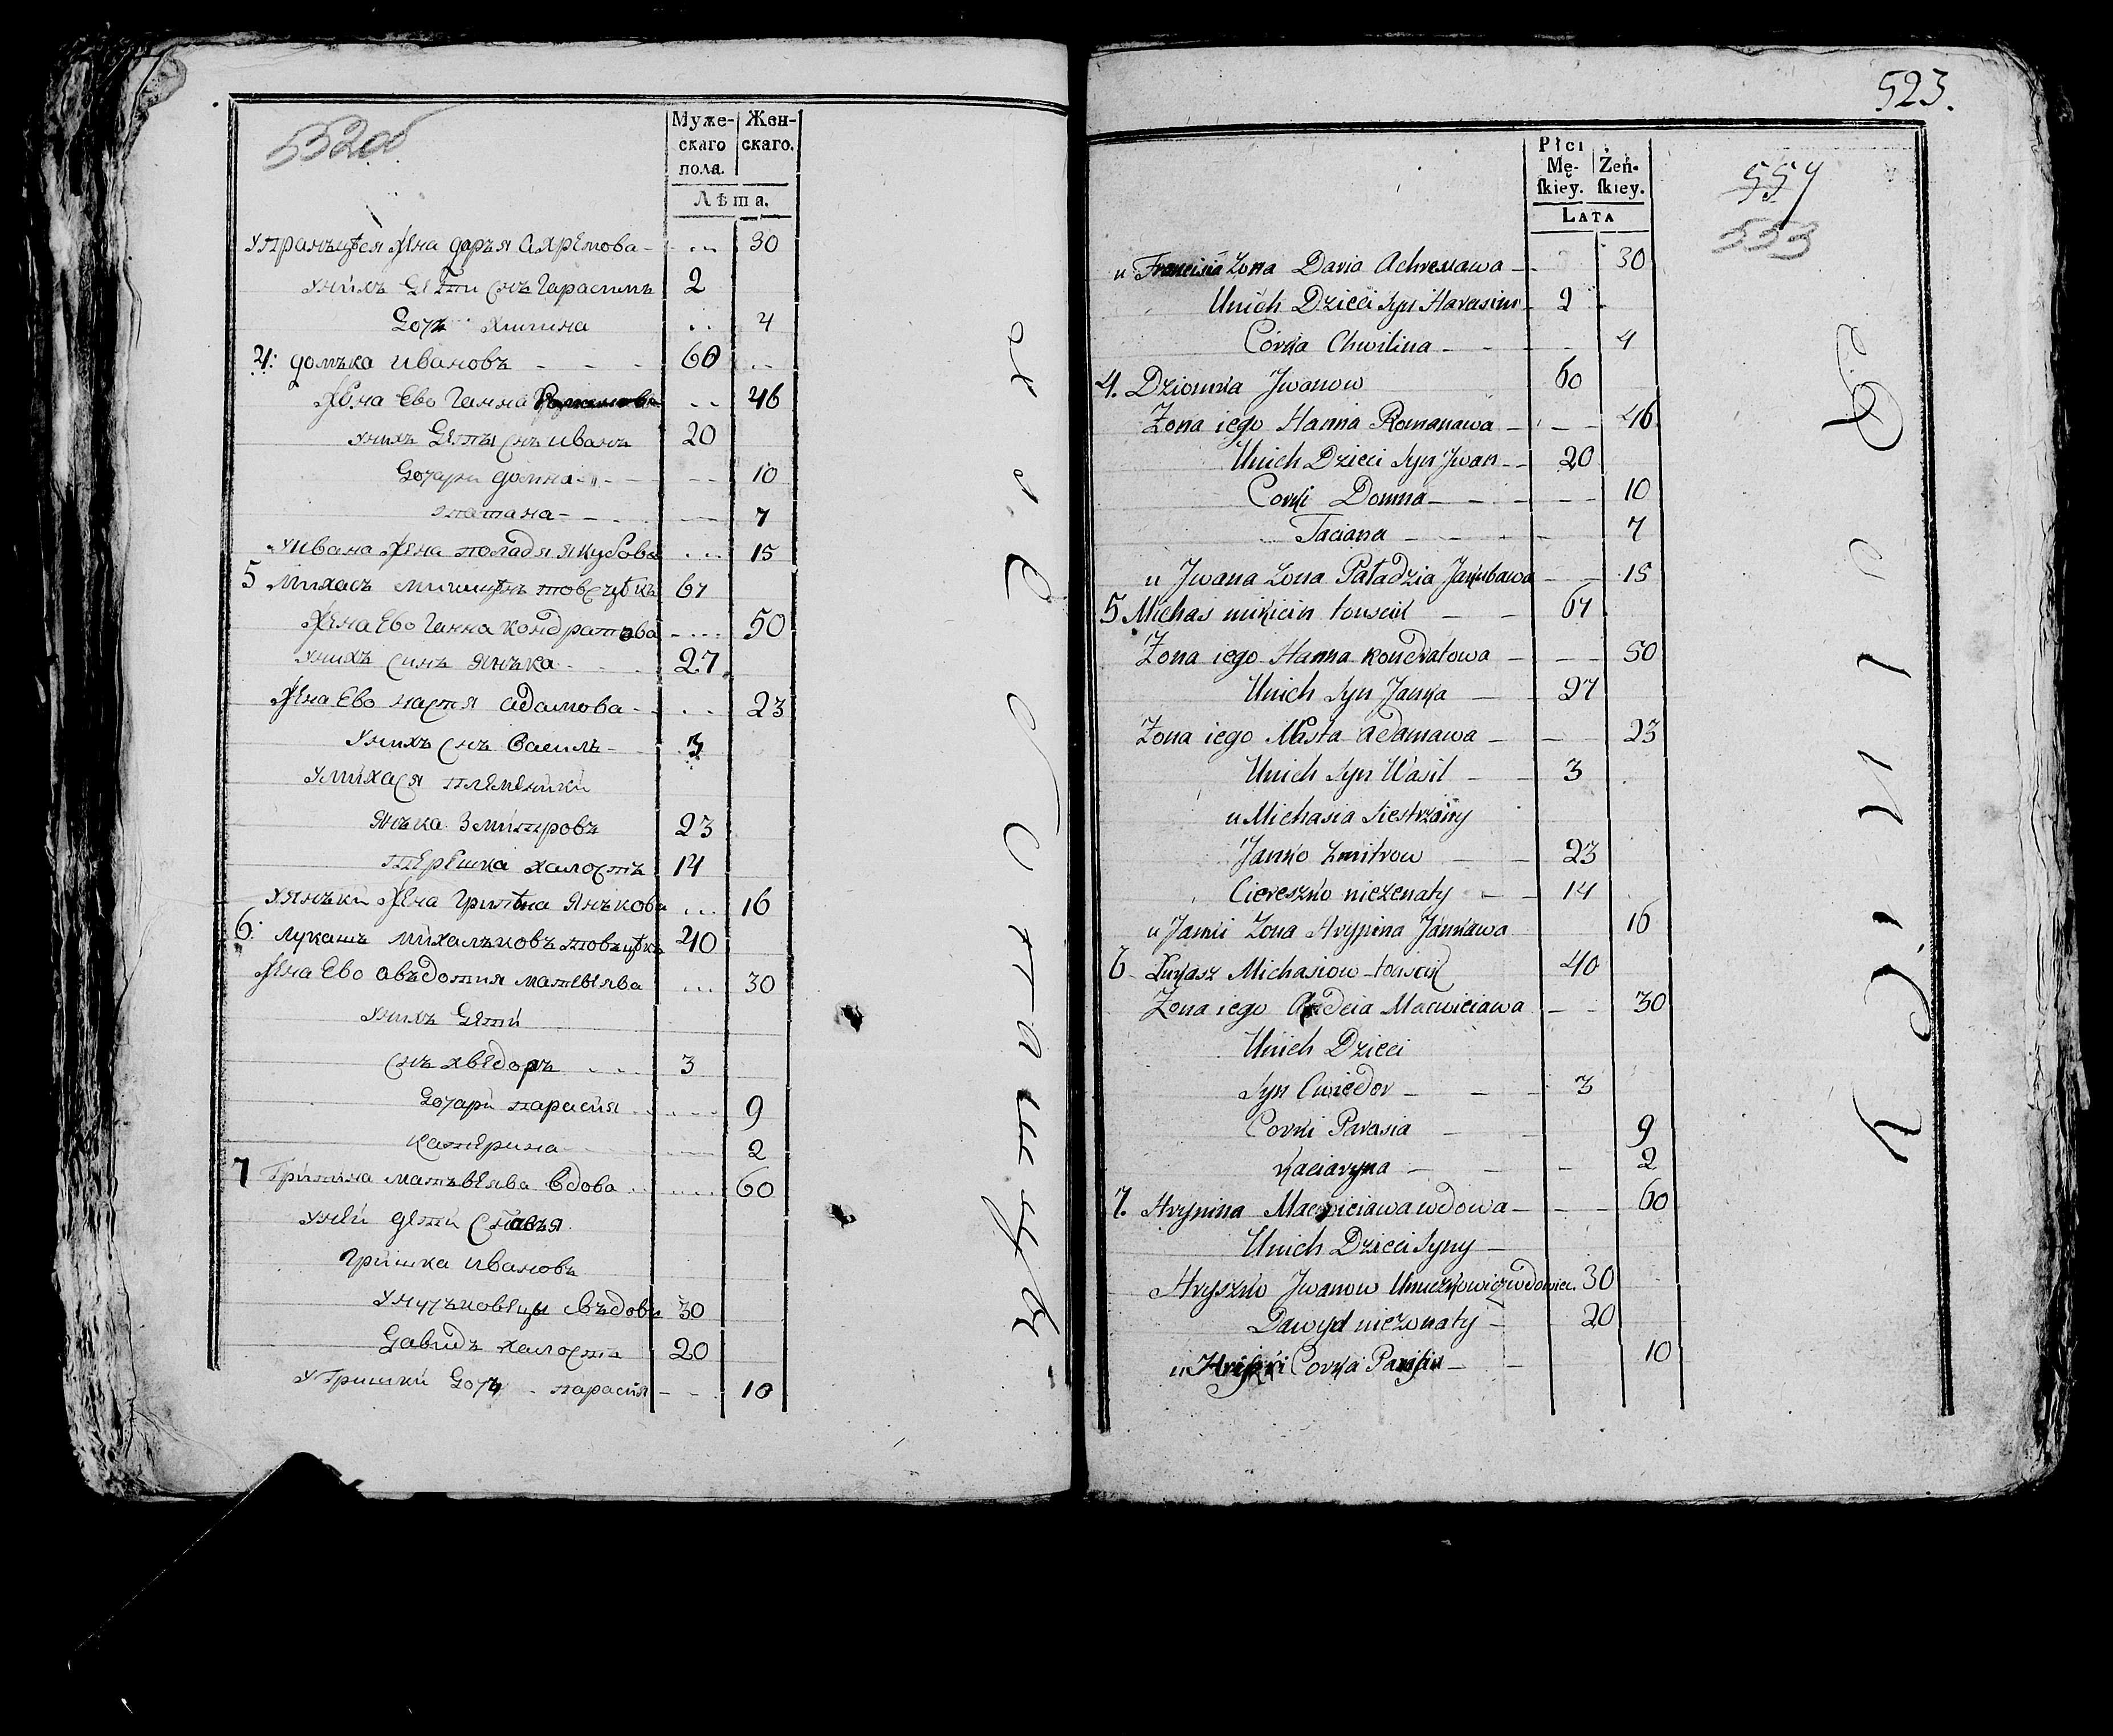 552об
Муже-
скаго
пола.
Жен-
скаго.
Лѣта.
упранъцѣся жена даръя Ахремова - - .. 30
унихъ дети снъ Гарасимъ 2
дочъ хими́на .. 4
4: домъка ивановъ - - - 60 ..
жена ево Ганна Романова .. 46
унихъ детъи снъ иванъ 20
дочари домна - - - 10
татана - - - 7
уивана жена поладя якубова ... 15
5 михасъ микицѣнъ товсцѣкъ 67
жена ево Ганна кондратова - ... 50
унихъ синъ янъка - - 27
жена ево настя адамова - .. 23
унихъ снъ василь - 3
умихася племеники
янъка змитровъ 23
терешка халостъ 14
уянъки жена грипина янъкова ... 16
6: лукашъ михалъковъ товсцѣкъ 40
жена ево авъдотия матвеява ... 30
унихъ дети
снъ хведоръ ... 3
дочари парасия ... 9
катерина 2
7 Грипина матъвеява вдова ... 60
уней дети
гришка ивановъ
въдовец 30
давидъ халостъ 20
у Гришки дочъ - парасия - - 10
523.
554
553
Płci
Mę-
skiey.
Żeń-
skiey.
LATA
u Francisia Zona Daria Achremawa - 30
Unich Dzieci Syn Harasim - 2 -
Córka Chwilina - - - 4
4. Dziomka Jwanow 60
Żona iego Hanna Romanawa - - - 46
Unich Dzieci Syn Jwan - - 20
Corki Domna - - - - 10
Taciana - - - - 7
u Jwana Zona Paładzia Jakubawa - - 15
5 Michas mikicin touscik - - 67
Żona iego Hanna Kondratowa - - - 50
Unich Syn Janka - - 27
Żona iego Nasta Adamawa - - 23
Unich Syn Wasil - - 3
u Michasia Siestrzány
Janko Zmitrow - - 23
Ciereszko nieżenaty - - 14
u Janki Zona Hrypina Jánkawa 16
6 Łukasz Michasiow touscik 40
Żona iego Audocia Macwieiawa - - 30
Unich Dzieci
Syn Chwiedor - - - 3
Corki Parasia - - 9
Kaciaryna - - - 2
7. Hrypina Macwieiawa wdowa - - - 60
Unich Dzieci Syny -
Hryszko Jwanow wdowiec. 30
Dawyd nieżonaty - 20
u Hryszki Corka Parasia - - 10